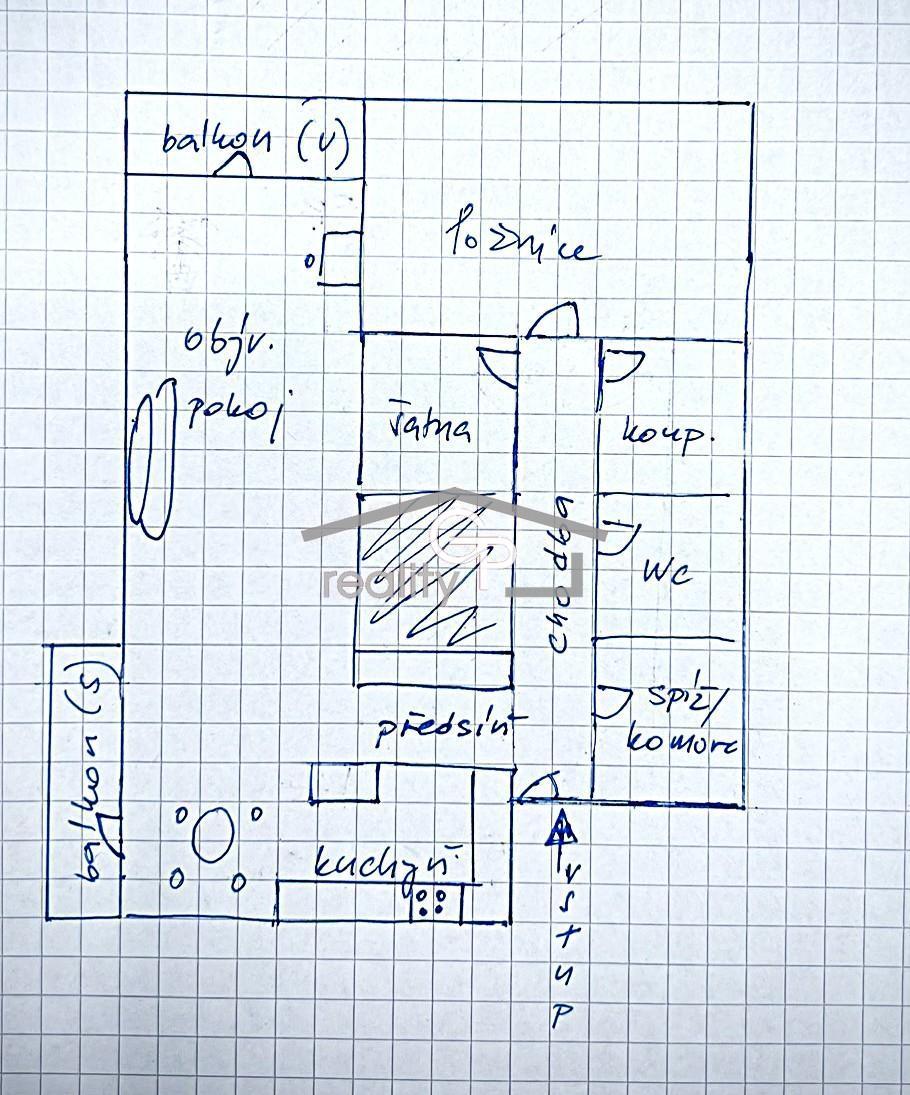 balkon (V)
ložnice
objv.
pokoj
šatna
koup.
chodba
GP
reality
WC
spíž/
komora
předsíň
balkon (S)
kuchyň
vstup